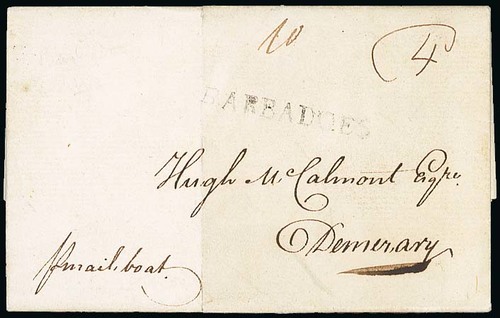 10
4
BARBADOES
Hugh McCalmont Esqre.
Demerary
pr mail boat.